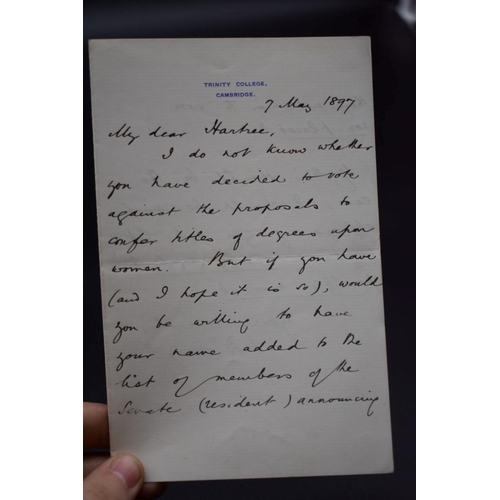 TRINITY COLLEGE,
CAMBRIDGE.
7 May 1897
My dear Hartree,
I do not know whether
you have decided to vote
against the proposals to
confer titles of degrees upon
women. But if you have
(and I hope it is so), would
you be willing to have
your name added to the
list of members of the
Senate (resident) announcing